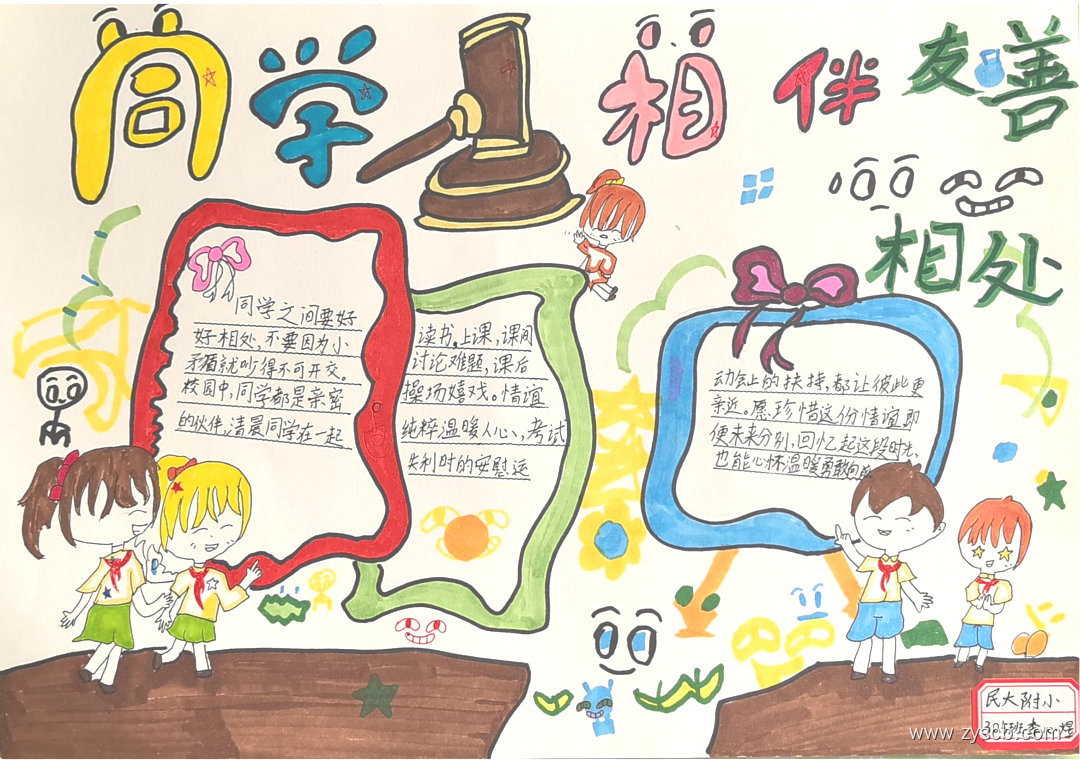 同学相伴
友善
相处
同学之间要好
好相处,不要因为小
矛盾就吵得不可开交。
校园中,同学都是亲密
的伙伴,清晨同学在一起
读书.上课,课间
讨论难题,课后
操场嬉戏。情谊
纯粹温暖人心、考试
失利时的安慰运
动会上的扶持,都让彼此更
亲近。愿珍惜这份情谊即
便未来分别,回忆起这段时光,
也能心怀温暖勇敢向
民大附小
www.zyscb.com